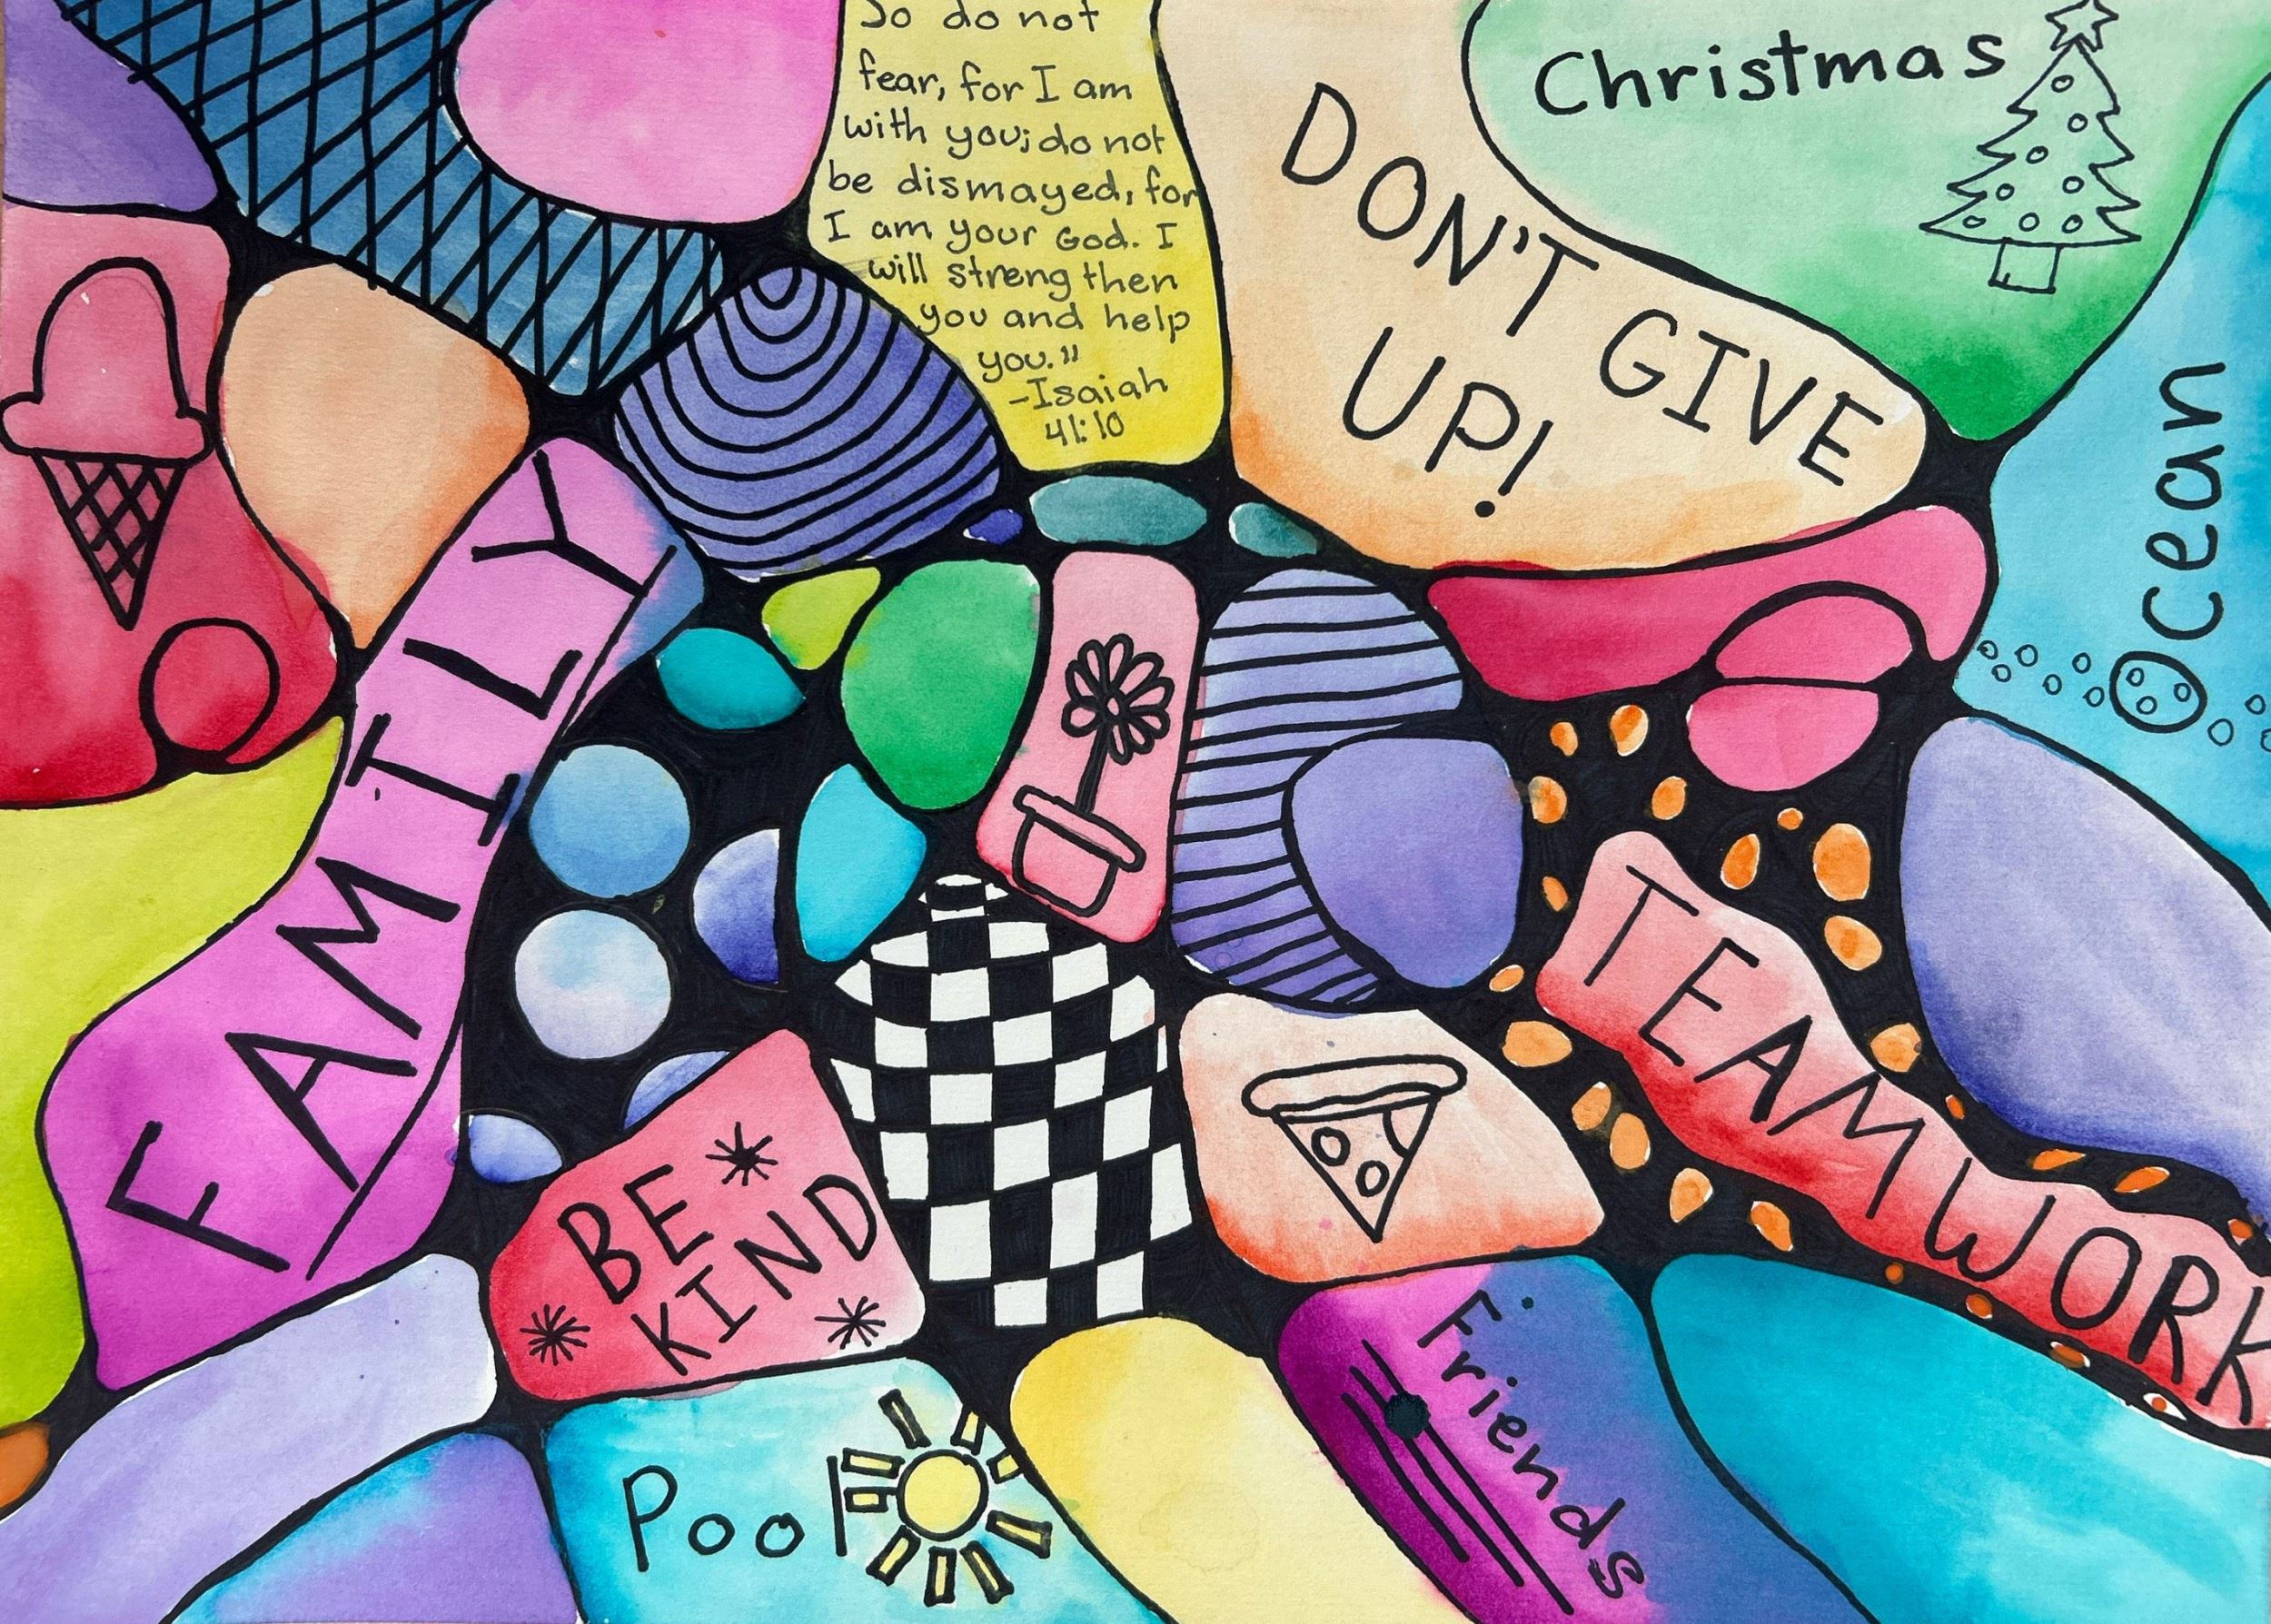 So do not
fear, for I am
with you; do not
be dismayed, for
I am your God. I
will strengthen
you and help
you."
-Isaiah
41:10
DON'T GIVE
UP!
Christmas
Ocean
FAMILY
TEAMWORK
BE
KIND
Pool
Friends